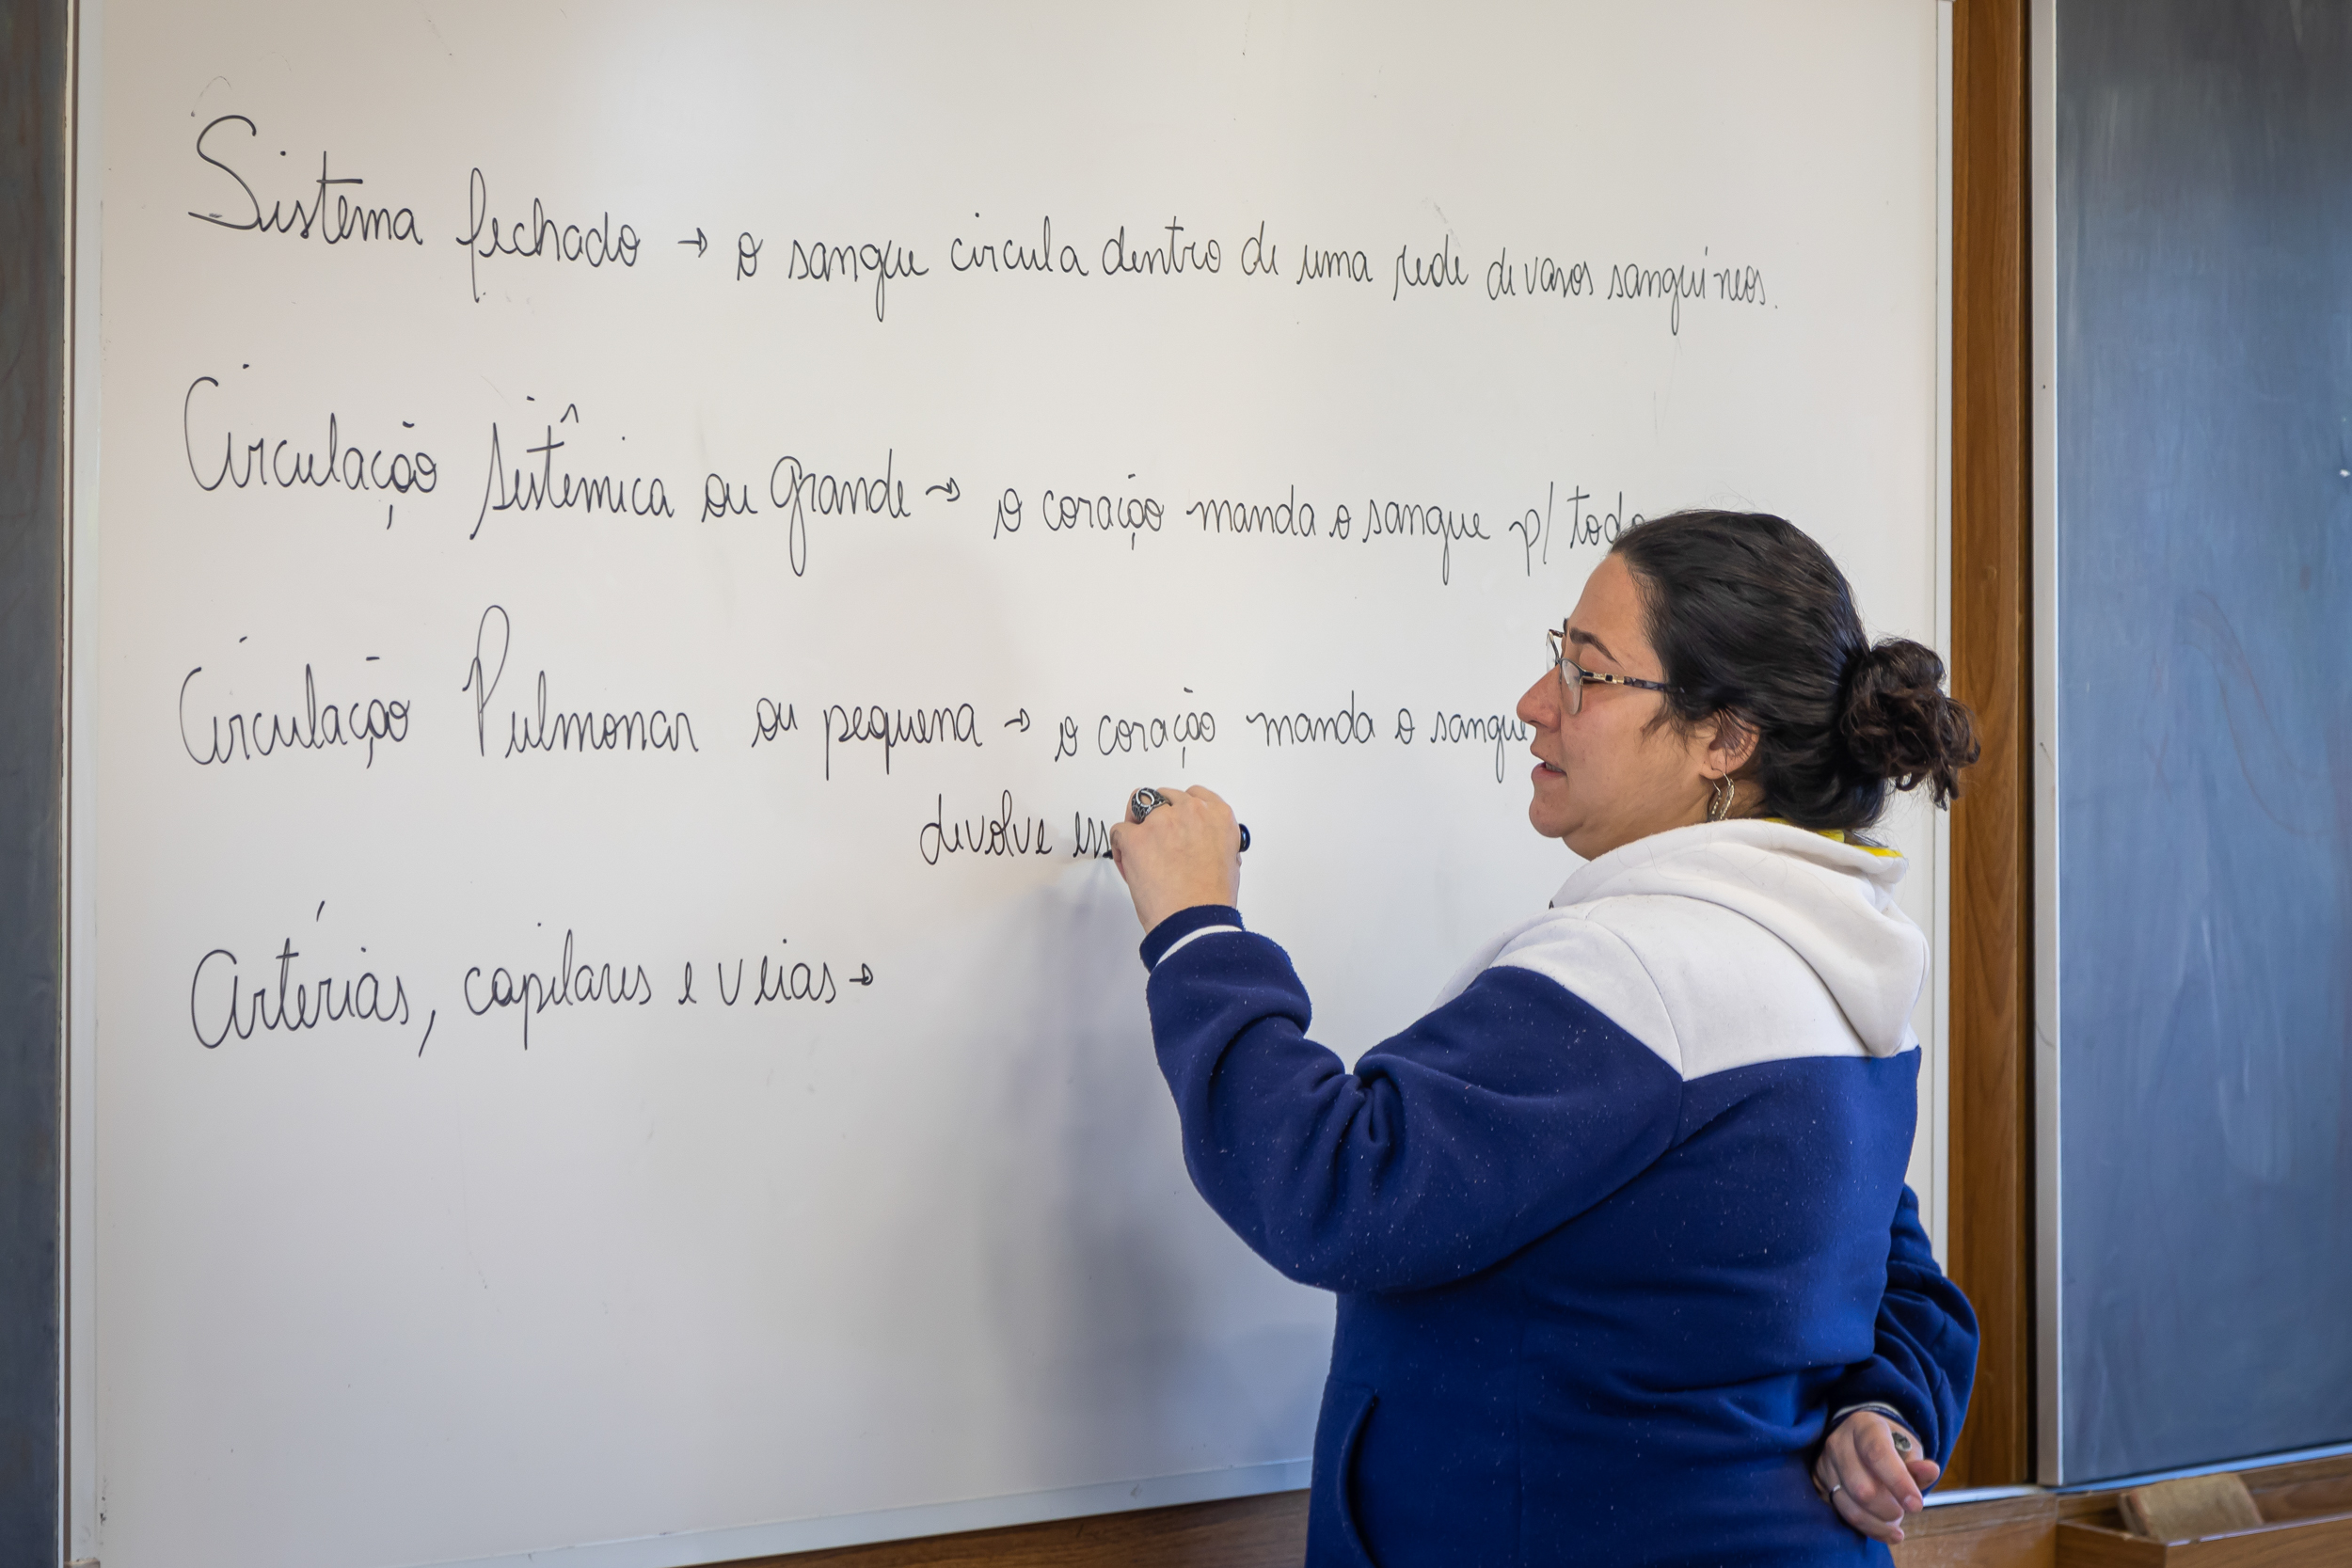 Sistema fechado → o sangue circula dentro de uma rede de vasos sanguíneos.
Circulação sistêmica ou grande → o coração manda o sangue p/ todo
Circulação Pulmonar ou pequena → o coração manda o sangue
devolve ess
Artérias, capilares e veias →